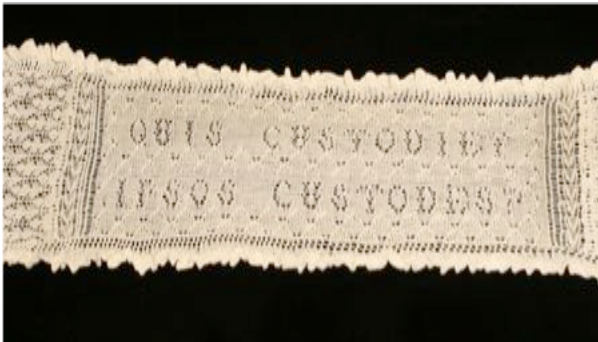 QUIS CUSTODIET
IPSOS CUSTODES?